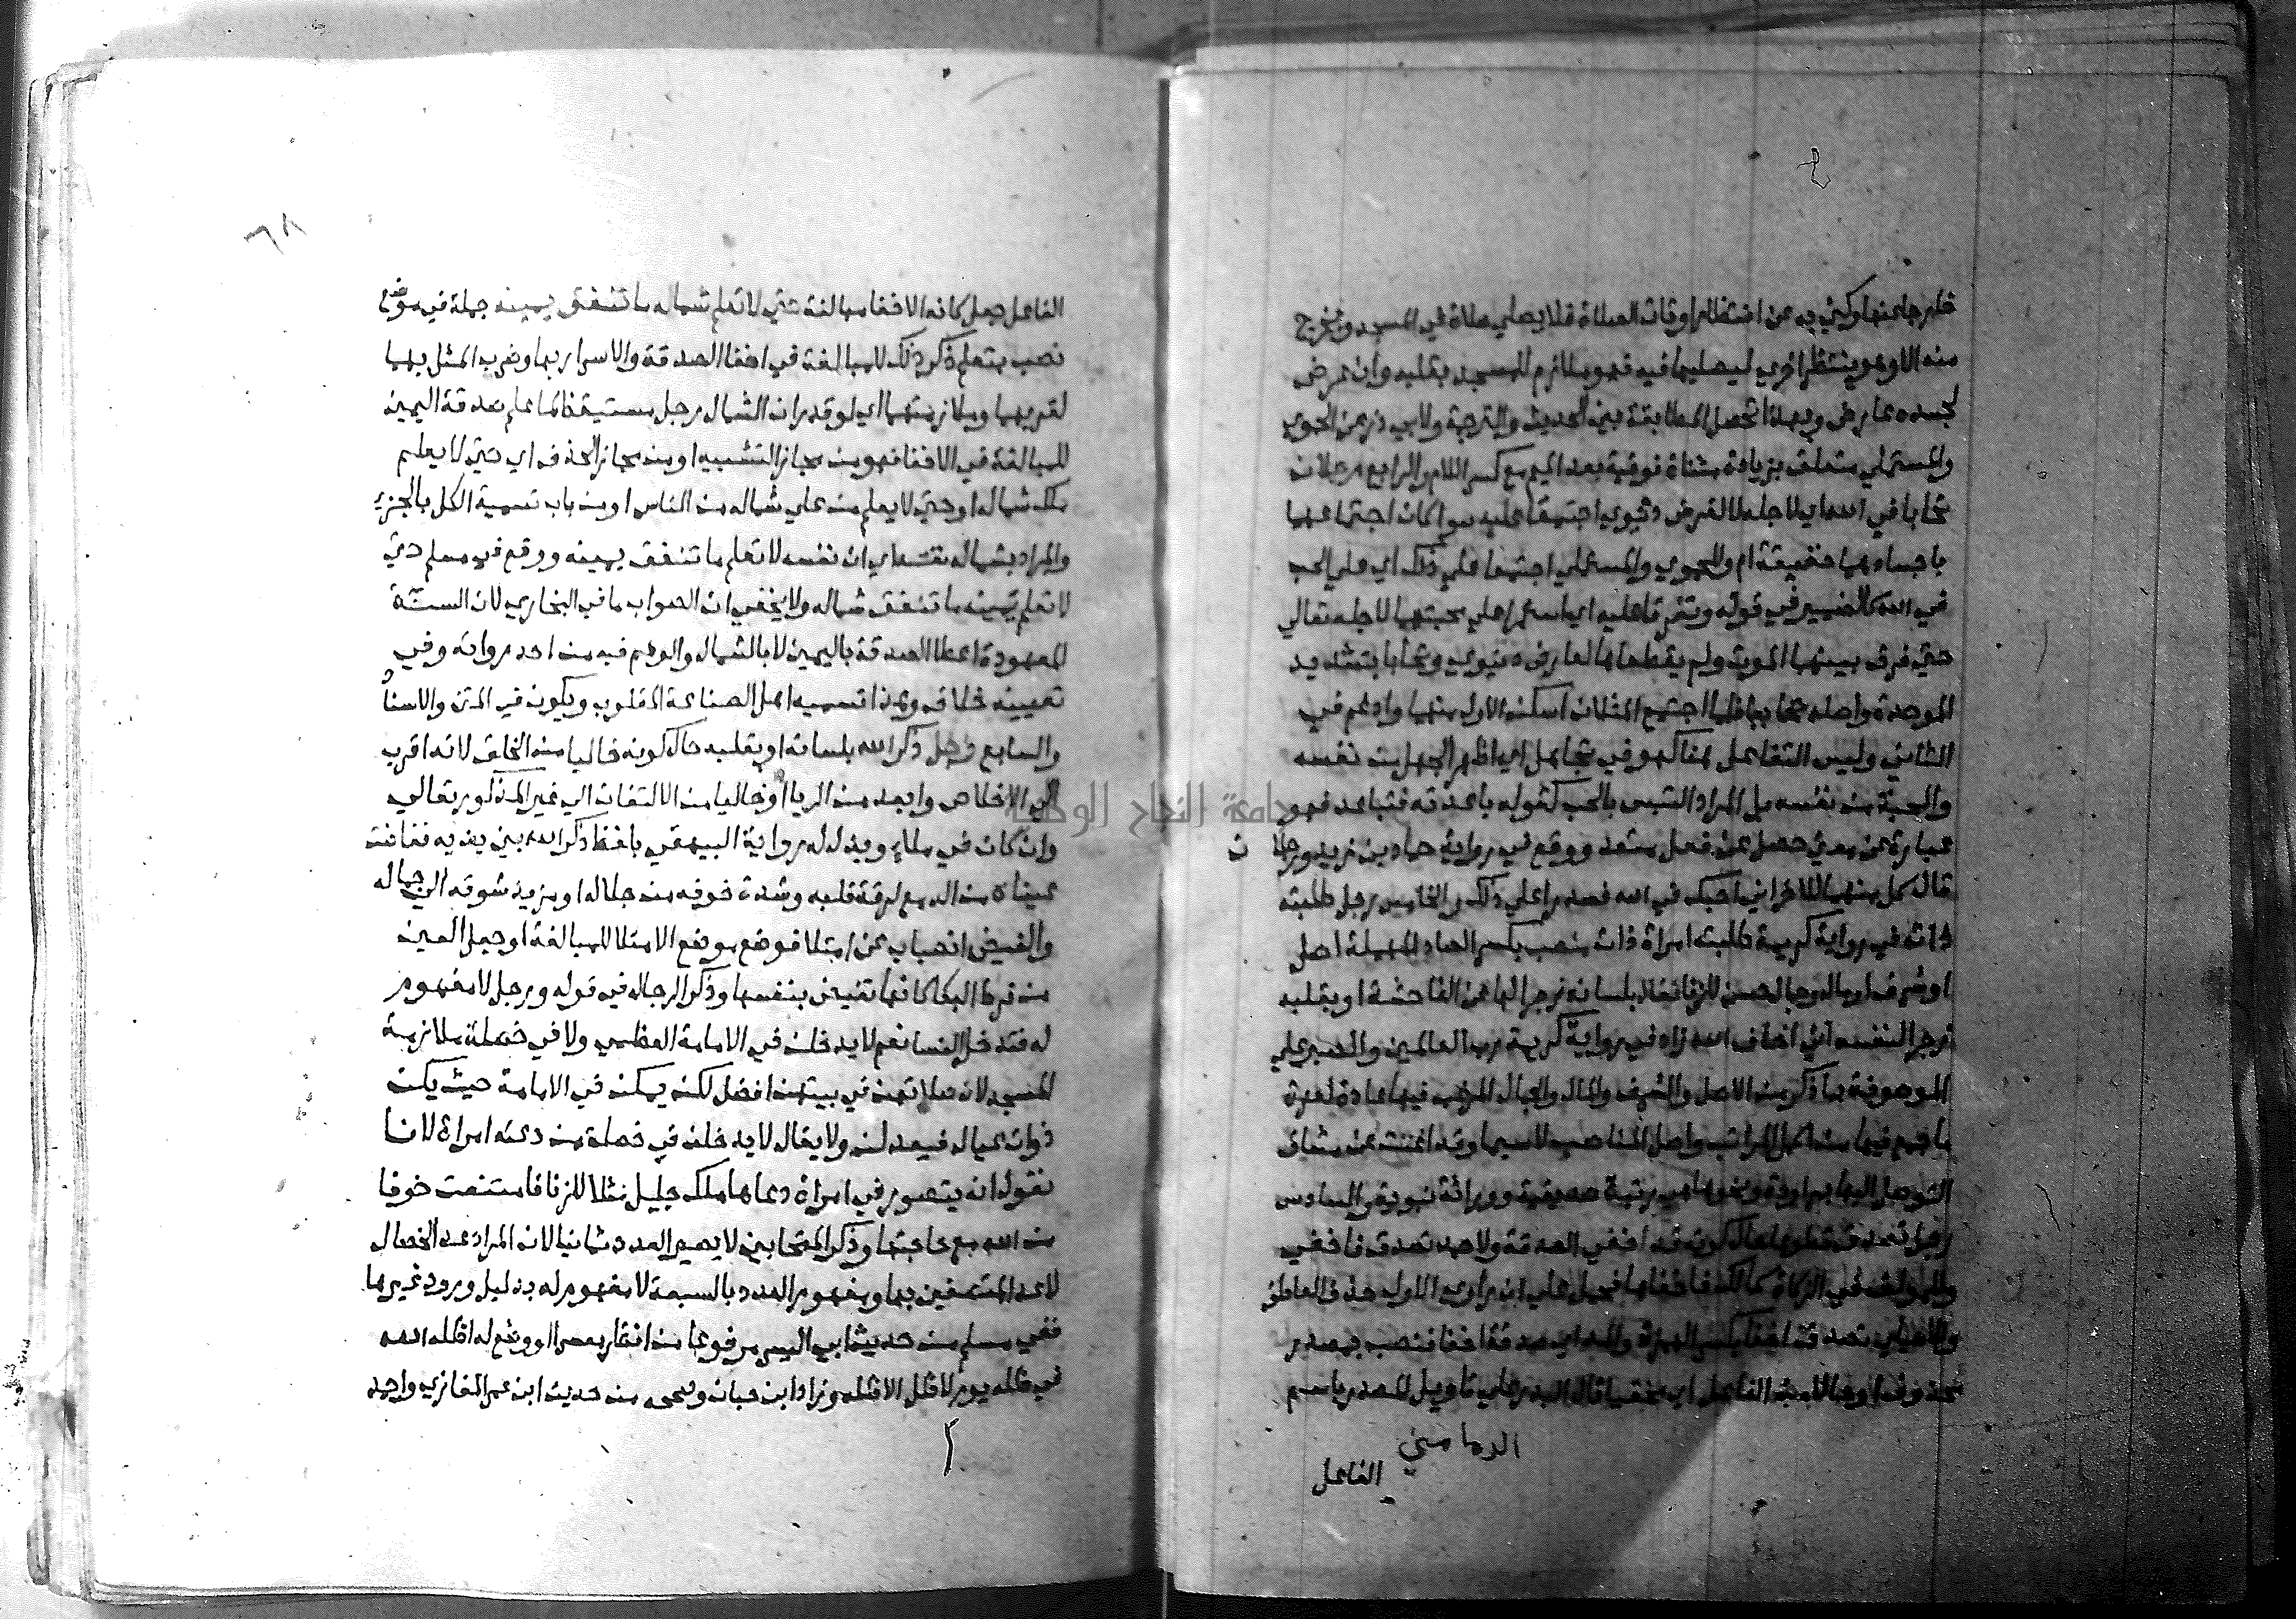 خارجا عنها وكني به عن انتظار اوقات الصلاة فلا يصلي صلاة في المسجد ويخرج
منه الا وهو ينتظر اخري ليصليها فيه فهو ملازم للمسجد بقلبه وان عرض
لجسده عارض وبهذا تحصل المطابقة بين الحديث والترجمة ولابي ذر عن الحموي
والمستملي متعلق بزيادة مثناة فوقية بعد الميم مع كسر اللام والرابع رجلان
تحابا في الله اي لاجله لا لغرض دنيوي اجتمعا عليه سوا كان اجتماعهما
باجسادهما حقيقة ام وللحموي والمستملي اجتمعا علي ذلك اي علي الحب
في الله كالضمير في قوله وتفرقا عليه اي استمرا علي محبتهما لاجله تعالي
حتي فرق بينهما الموت ولم يقطعاها لعارض دنيوي وتحابا بتشديد
الموحدة واصله تحاببا فلما اجتمع المثلان اسكن الاول منهما وادغم في
الثاني وليس التفاعل هنا كهو في تجاهل اي اظهر الجهل من نفسه
والمحبة من نفسه بل المراد التلبس بالحب كقوله باعدته فتباعد فهو
عبارة عن معني حصل عن فعل متعد ووقع في رواية حماد بن زيد ورجلان
قال كل منهما للاخر اني احبك في الله فصدرا علي ذلك والخامس رجل طلبته
ذات في رواية كريمة طلبته امراة ذات منصب بكسر الصاد المهملة اصل
او شرف او مال وجمال حسن للزنا فقال بلسانه زجرا لها عن الفاحشة او بقلبه
زجرا لنفسه اني اخاف الله زاد في رواية كريمة رب العالمين والصبر علي
الموصوفة بما ذكر من الاصل والشرف والمال والجمال المرغب فيها عادة لعزة
ما جمع فيها من اكمل المراتب واصل المناصب لاسيما وقد اغنت عن مشاق
التوصل اليها بمراودة ونحوها هي رتبة صديقية ووراثة نبوية والسادس
رجل تصدق تطوعا حال كونه قد اخفي الصدقة ولاحمد تصدق فاخفي
وللمولف في الزكاة كمالك فاخفاها فيحمل علي ان راوي الاول حذف العاطف
وللاصيلي تصدق اخفا بكسر الهمزة والمد اي صدقة اخفا فنصب بمصدر
محذوف او حالا من الفاعل اي مخفيا قال البدر علي تاويل المصدر باسم
الدماميني
الفاعل
٦٨
الفاعل جعل كانه الاخفا مبالغة حتي لا تعلم شماله ما تنفق يمينه جملة في موضع
نصب بتعلم ذكر ذلك للمبالغة في اخفا الصدقة والاسرار بها وضرب المثل بهما
لقربهما وملازمتهما اي لو قدر ان الشمال رجل مستيقظ لما علم صدقة اليمين
للمبالغة في الاخفا فهو من مجاز التشبيه او من مجاز الحذف اي حتي لا يعلم
ملك شماله او حتي لا يعلم من علي شماله من الناس او من باب تسمية الكل بالجزء
والمراد بشماله نفسه اي ان نفسه لا تعلم ما تنفق يمينه ووقع في مسلم حتي
لا تعلم يمينه ما تنفق شماله ولا يخفي ان الصواب ما في البخاري لان السنة
المعهودة اعطا الصدقة باليمين لا بالشمال والوهم فيه من احد رواته وفي
تعيينه خلاف وهذا تسميه اهل الصناعة المقلوب ويكون في المتن والاسناد
والسابع رجل ذكر الله بلسانه او بقلبه حال كونه خاليا من الخلق لانه اقرب
الي الاخلاص وابعد من الريا او خاليا من الالتفات الي غير المذكور تعالي
وان كان في ملا ويدل له رواية البيهقي بلفظ ذكر الله بين يديه ففاضت
عيناه من الدمع لرقة قلبه وشدة خوفه من جلاله او مزيد شوقه الي جماله
والفيض انصباب عن امتلا فوضع موضع الامتلا للمبالغة او جعل العين
من فرط البكا كانها تفيض بنفسها وذكر الرجال في قوله ورجل لا مفهوم
له فتدخل النسا نعم لا يدخلن في الامامة العظمي ولا في خصلة ملازمة
المسجد لان صلاتهن في بيتهن افضل لكن يمكن في الامامة حيث يكن
ذوات عيال فيعدلن ولا يقال لا يدخلن في خصلة من دعته امراة لانا
نقول انه يتصور في امراة دعاها ملك جليل مثلا للزنا فامتنعت خوفا
من الله مع حاجتها وذكر المتحابين لا يصير العدد ثمانيا لان المراد عد الخصال
لا عد المتصفين بها ومفهوم العدد بالسبعة لا مفهوم له بدليل ورود غيرها
ففي مسلم من حديث ابي اليسر مرفوعا من انظر معسرا او وضع له اظله الله
في ظله يوم لا ظل الا ظله وزاد ابن حبان وصححه من حديث ابن عمر الغازي واحمد
جامعة النجاح الوطنية